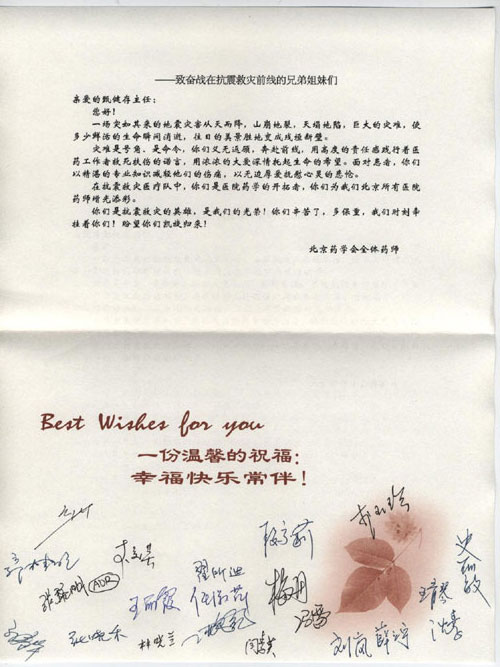 ——致奋战在抗震救灾前线的兄弟姐妹们
亲爱的甄健存主任：
您好！
一场突如其来的地震灾害从天而降，山崩地裂，天塌地陷，巨大的灾难，使
多少鲜活的生命瞬间消逝，往日的美景胜地变成残垣断壁。
灾难是号角，是命令，你们义无返顾，奔赴前线，用高度的责任感践行着医
药工作者救死扶伤的诺言，用浓浓的大爱深情托起生命的希望。面对患者，你们
以精湛的专业知识减轻他们的伤痛，以无边厚爱抚慰心灵的悲伦。
在抗震救灾医疗队中，你们是医院药学的开拓者，你们为我们北京所有医院
药师增光添彩。
你们是抗震救灾的英雄，是我们的光荣！你们辛苦了，多保重，我们时刻牵
挂着你们！盼望你们凯旋归来！
北京药学会全体药师
Best Wishes for you
一份温馨的祝福：
幸福快乐常伴！
ADR
王丽霞
翟所迪
梅丹
冯雷
林晓兰
刘岚
薛宁
沈素
史丽敏